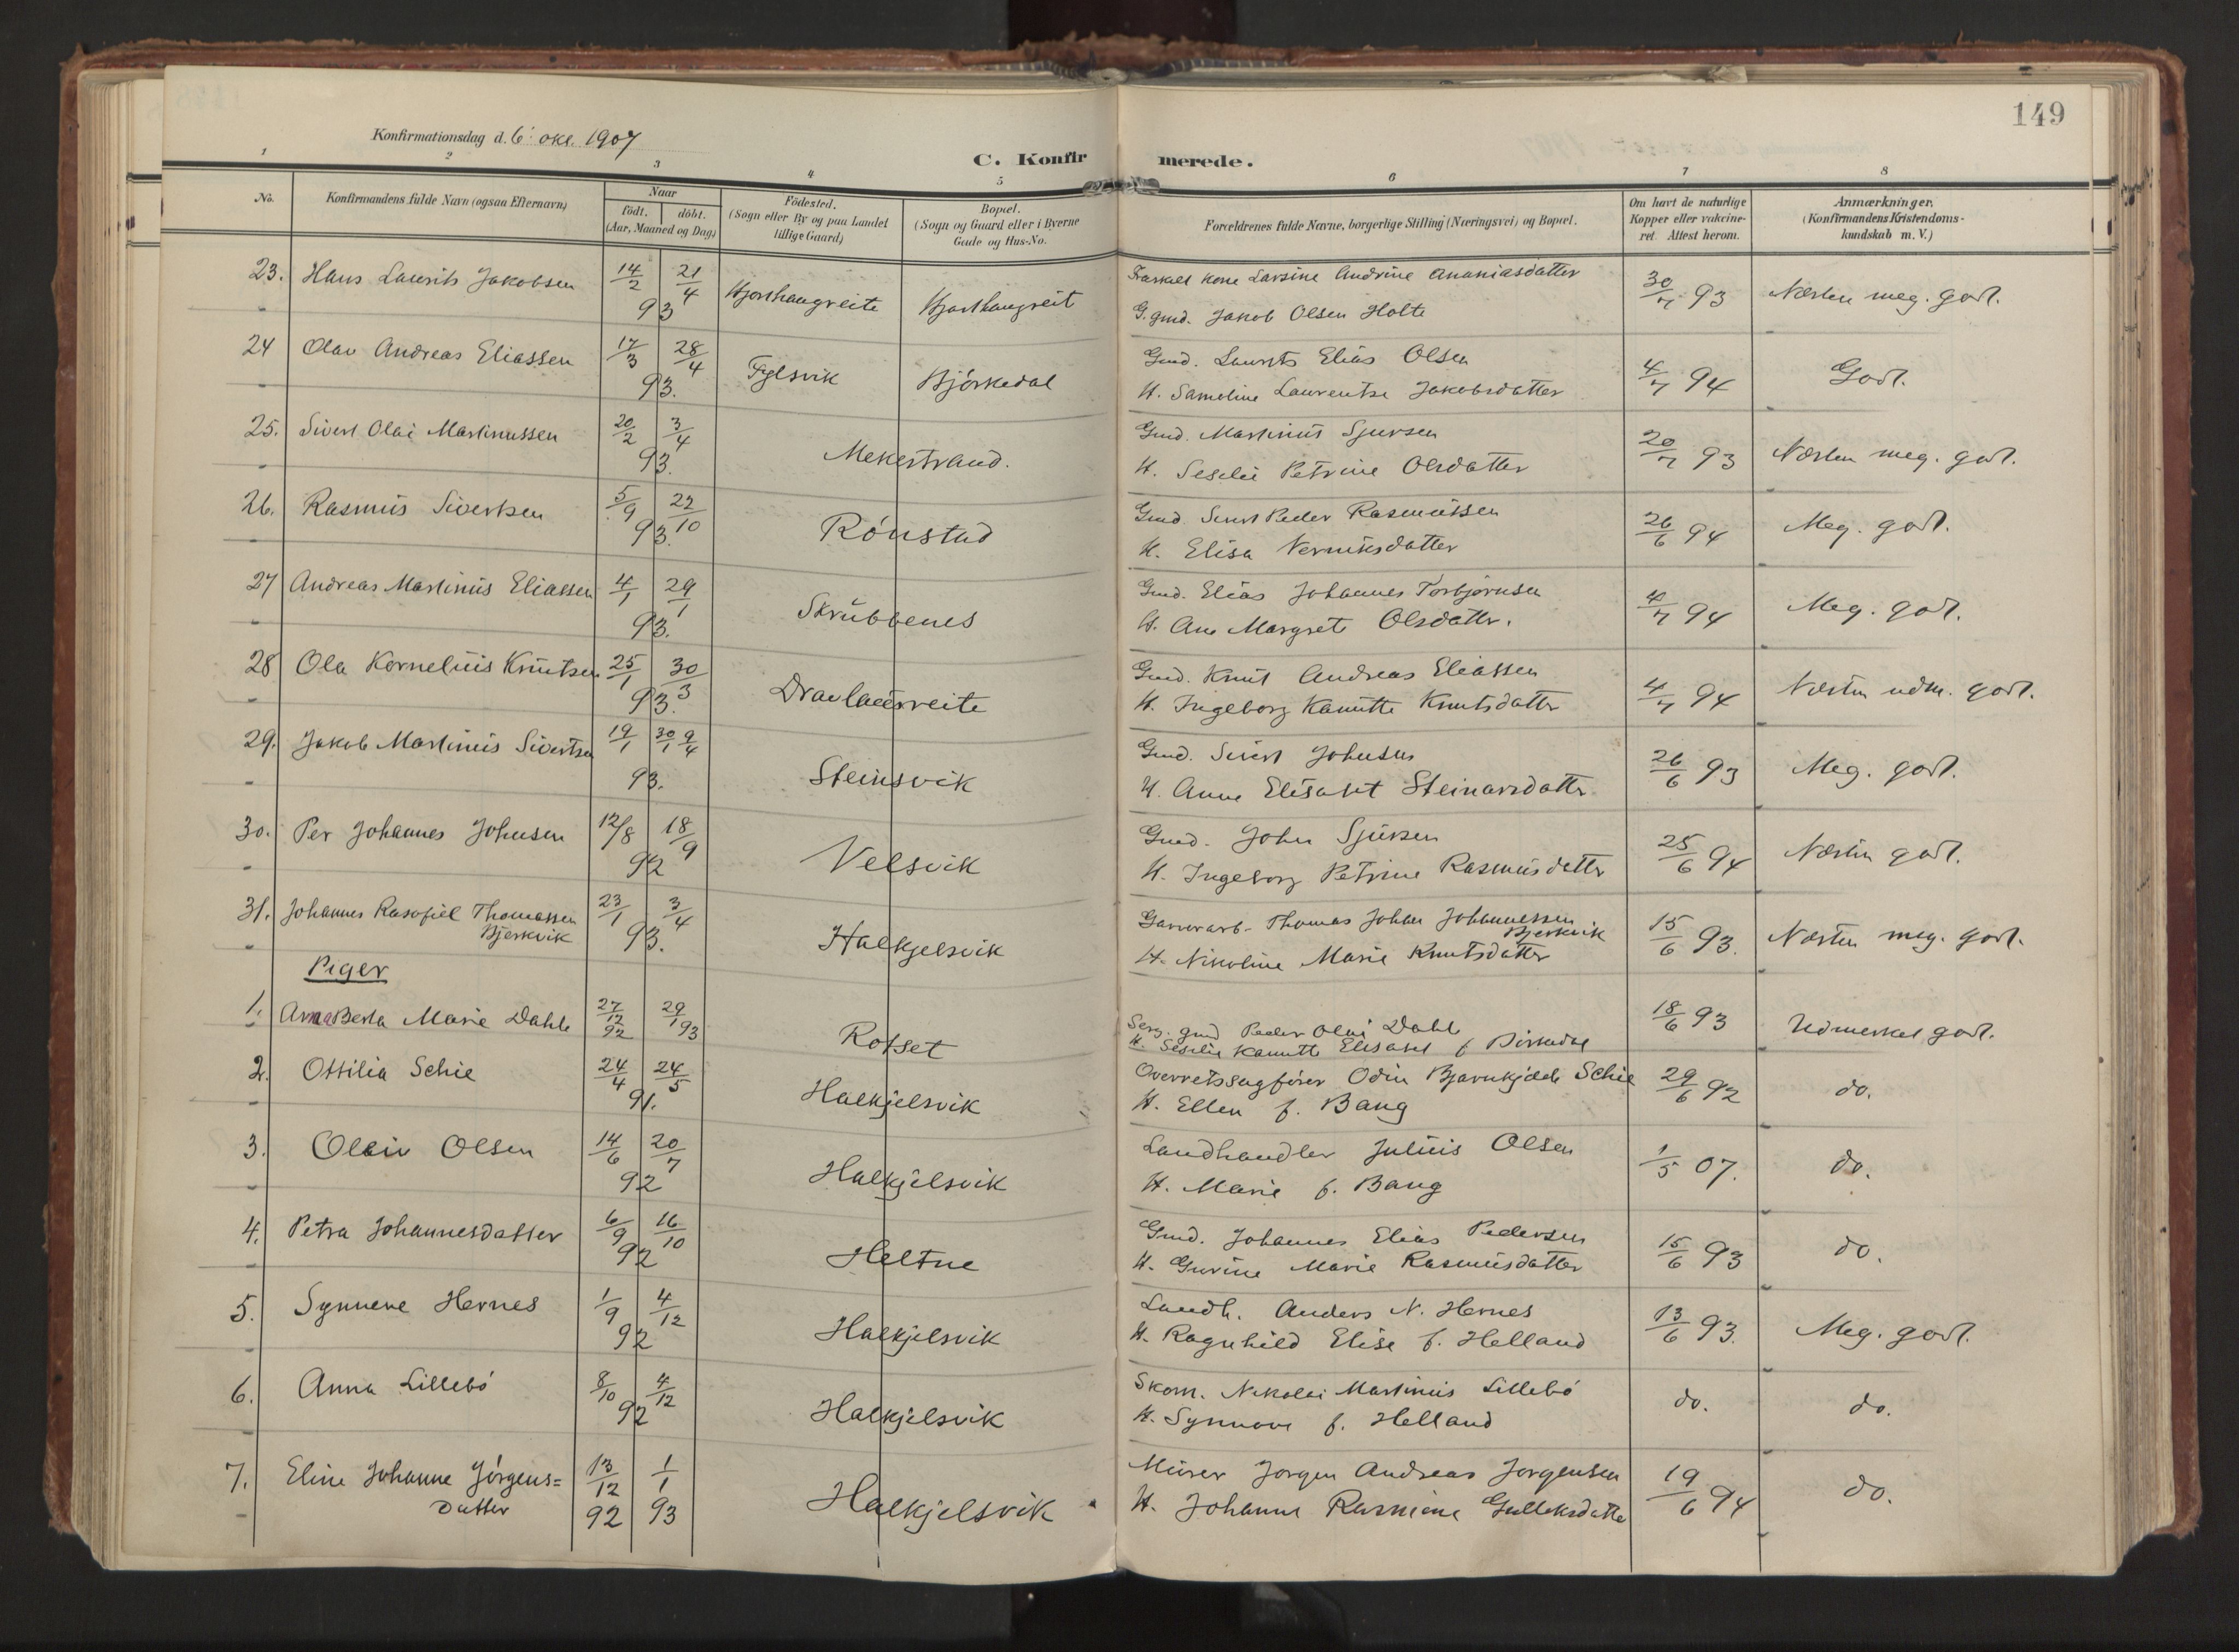 149
Konfirmationsdag d. 6 okt. 1907
C. Konfirmerede.
1 2 3 4 5 6 7 8
No.
Konfirmandens fulde Navn (ogsaa Efternavn)
Naar
födt. döbt.
(Aar, Maaned og Dag)
Födested.
(Sogn eller By og paa Landet
tillige Gaard)
Bopæl.
(Sogn og Gaard eller i Byerne
Gade og Hus-No.
Forældrenes fulde Navne, borgerlige Stilling (Næringsvei) og Bopæl.
Om havt de naturlige
Kopper eller vakcine-
ret. Attest herom.
Anmærkninger.
(Konfirmandens Kristendoms-
kundskab m. V.)
23. Hans Laurits Jakobsen 14/2 21/4 93 Hjorthaugreite Hjorthaugreit kone Larsine Andrine Ananiasdatter 30/7 93 Næsten meg. godt.
G.gmd. Jakob Olsen Holte
24 Olav Andreas Eliassen 17/3 28/4 93. Fylsvik Björkedal Gmd. Laurits Elias Olsen 4/7 94 Godt.
H. Samoline Laurentse Jakobsdatter
25. Sivert Olai Martinussen 20/2 3/4 93. Mekestrand. Gmd. Martinus Sjursen 20/7 93 Næsten meg. godt.
H. Seselie Petrine Olsdatter
26. Rasmus Sivertsen 5/9 22/10 93. Rönstad Gmd. Sivert Peder Rasmussen 26/6 94 Meg. godt.
H. Elisa
27 Andreas Martinus Eliassen 4/1 29/1 93. Skrubbenes Gmd. Elias Johannes Torbjørnsen 4/7 94 Meg. godt.
H. Ane Margrete Olsdatter.
28 Ola Kornelius Knutsen 25/1 30/3 93. Dravlausreite Gmd. Knut Andreas Eliassen 4/7 94 Næsten udm. godt.
H. Ingeborg Kanutte Knutsdatter
29. Jakob Martinus Sivertsen 19/1 30/1 9/4 93. Steinsvik Gmd. Sivert Johnsen 26/6 93 Meg. godt.
H. Anne Elisabet Steinarsdatter
30. Per Johannes Johnsen 12/8 18/9 92 Velsvik Gmd. John Sjursen 25/6 94 Næsten godt.
H. Ingeborg Petrine Rasmusdatter
31. Johannes Rasofiel Thomassen 23/1 3/4 93. Halkjelsvik Garverarb. Thomas Johan Johannessen 15/6 93. Næsten meg. godt.
Bjerkvik Bjerkvik
H. Nikoline Marie Knutsdatter
Piger
1. Anna Berta Marie Dahle 27/12 92 29/1 93 Rotset Serg. gmd Peder Olai Dahle 18/6 93 Udmerket godt.
H. Seselie Kanutte Elisabet f
2. Ottilia Schie 24/4 24/5 91. Halkjelsvik Overretssagförer Odin Schie 29/6 92 do.
H. Ellen f. Bang
3. Olsen 14/6 20/7 92 Halkjelsvik Landhandler Julius Olsen 1/5 07. do.
H. Marie f. Bang
4. Petra Johannesdatter 6/9 16/10 92 Heltne Gmd. Johannes Elias Pedersen 15/6 93 do.
H. Gurine Marie Rasmusdatter
5. Synneve Hernes 1/9 4/12 92 Halkjelsvik Landh. Anders N. Hernes 13/6 93. Meg. godt.
H. Ragnhild Elise f. Helland
6. Anna Lillebö 8/10 4/12 92 Halkjelsvik Skom. Nikolai Martinus Lillebö do. do.
H. Synnove f. Helland
7. Eline Johanne Jörgens= 13/12 92 1/1 93 Halkjelsvik Murer Jorgen Andreas Jorgensen 19/6 94 do.
datter
H. Johanne Rasmine Gulleksdatter